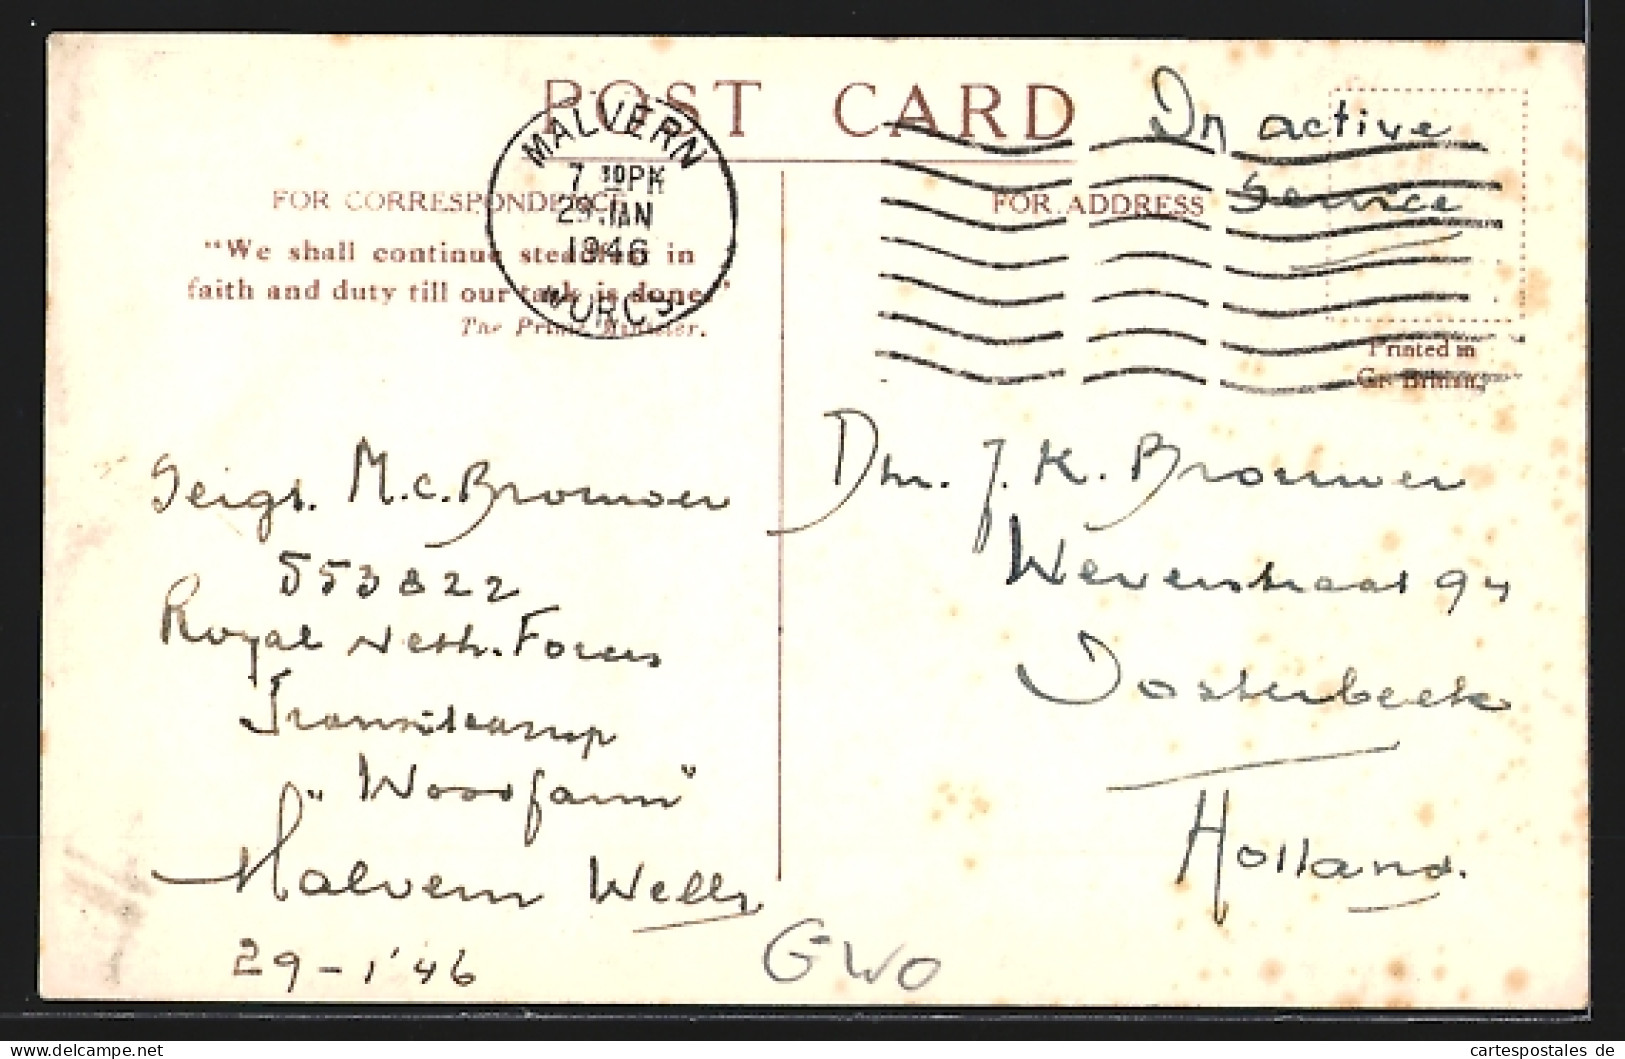 POST CARD
On active
Service
MALVERN
7 30PM
29 JAN
1946
WORCS.
FOR CORRESPONDENCE
FOR ADDRESS
"We shall continue steadfast in
faith and duty till our task is done."
The Prime Minister.
Printed in
Gt. Britain.
M.C. Brouwer
553822
Royal Neth. Forces
Transitcamp
"Woodfarm"
Malvern Wells
29-1'46
Dhr. J. K. Brouwer
Weverstraat 94
Oosterbeek
Holland.
GWO
www.delcampe.net
cartespostales de